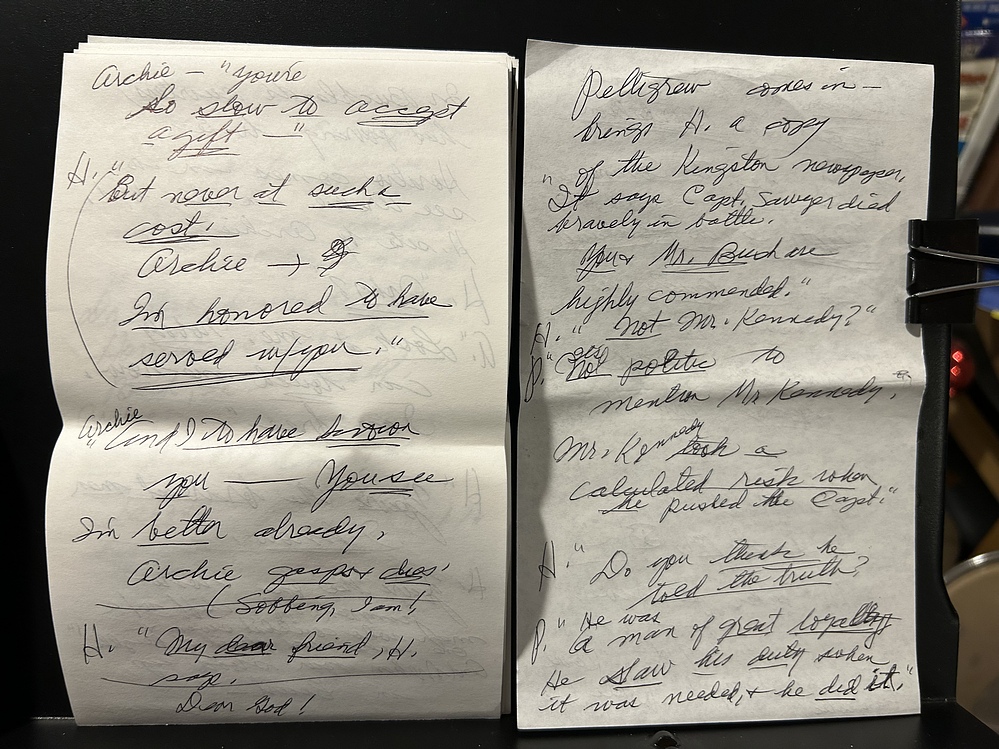 Archie – "You're
So slow to accept
a gift —"
H. "But never at such a
cost.
Archie →
I'm honored to have
served w/you."
Archie
"(and) I to have known
you — You see
I'm better already,
Archie gasps & dies!
(Sobbing, I am!
H. "My dear friend, H.
says.
Dear God!
Pelligrew comes in –
brings H. a copy
of the Kingston newspaper.
"It says Capt. Sawyer died
bravely in battle.
You & Mr. Bush are
highly commended."
H. "Not Mr. Kennedy?"
P. "Not politic to
mention Mr Kennedy,
Mr. Kennedy took a
calculated risk when
he pushed the Capt."
H. "Do you think he
told the truth?
P. "He was
a man of great loyalty
He saw his duty when
it was needed, & he did it."